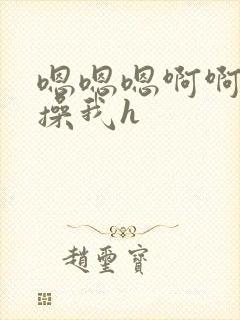 嗯嗯嗯啊啊
操我h
趙璽寶